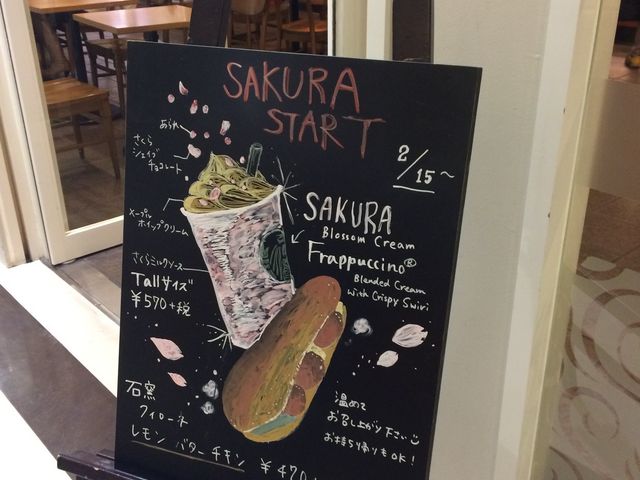 SAKURA
START
2/15~
あられ
さくら
シェイブ
チョコレート
メープル
ホイップクリーム
さくらミルクソース
Tallサイズ
¥570+税
SAKURA
Blossom Cream
Frappuccino®
Blended Cream
with Crispy Swirl
石窯
フィローネ
レモン バターチキン ¥470
温めて
お召し上がり下さい
お持ち帰りもOK!